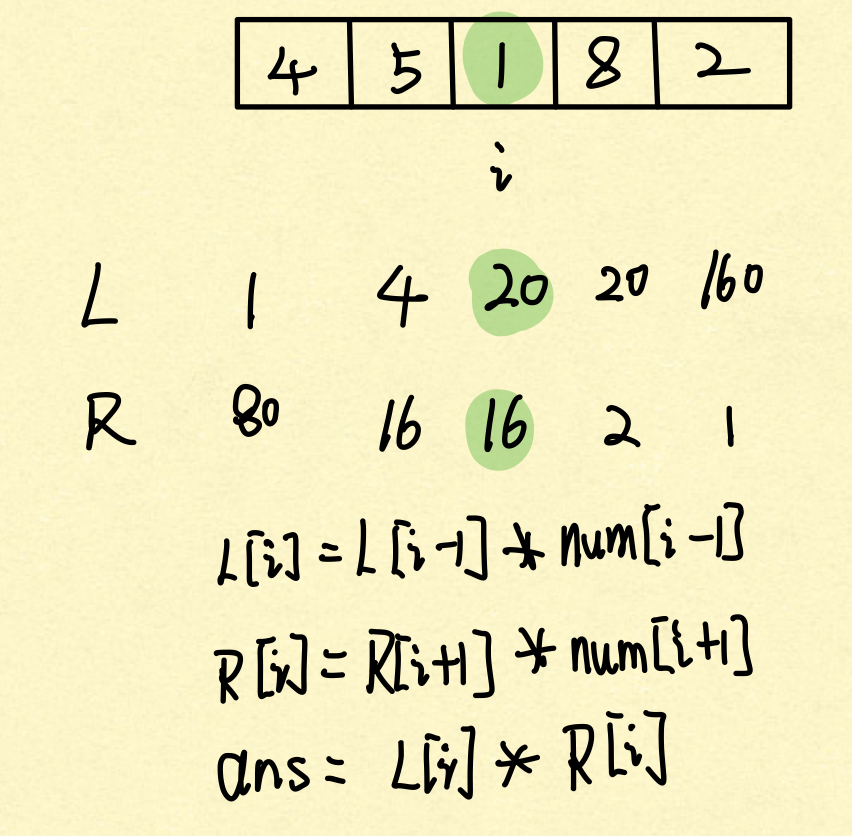 4 5 1 8 2
i
L 1 4 20 20 160
R 80 16 16 2 1
L[i] = L[i-1] * num[i-1]
R[i] = R[i+1] * num[i+1]
ans = L[i] * R[i]